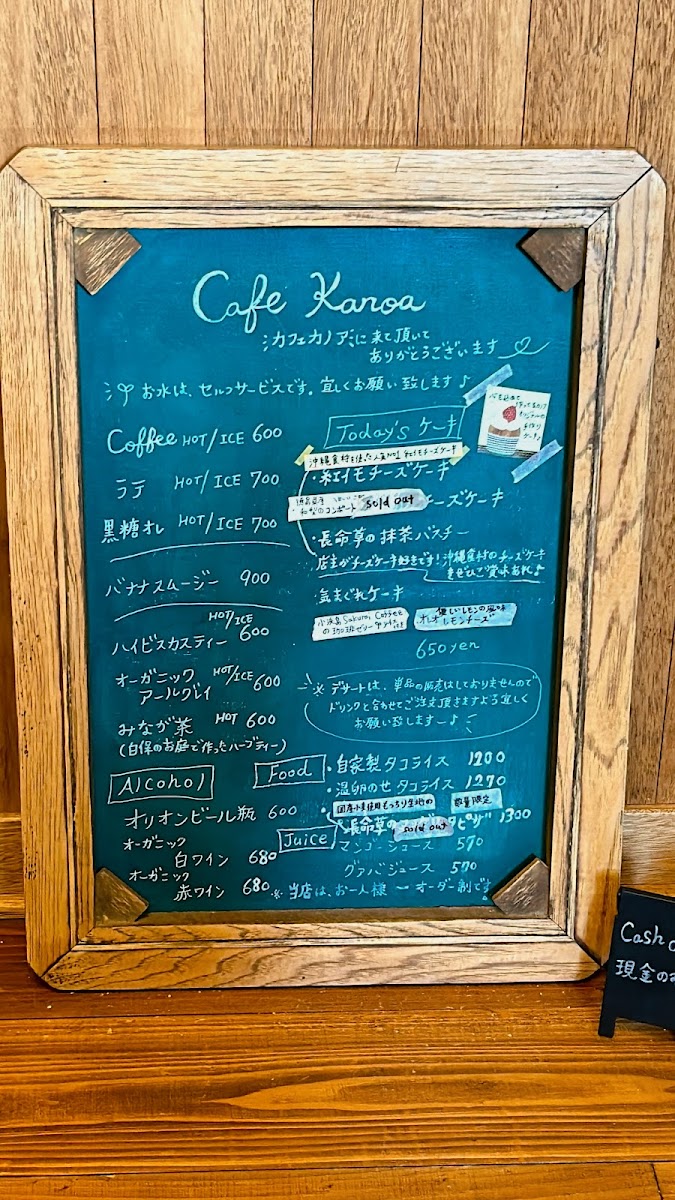 Cafe Kanoa
カフェカノアに来て頂いて
ありがとうございます
お水は、セルフサービスです。宜しくお願い致します♪
Coffee HOT/ICE 600
ラテ HOT/ICE 700
黒糖オレ HOT/ICE 700
バナナスムージー 900
HOT/ICE
ハイビスカスティー 600
オーガニック HOT/ICE 600
アールグレイ
みなが茶 HOT 600
(白保のお庭で作ったハーブティー)
Alcohol
オリオンビール瓶 600
オーガニック
白ワイン 680
オーガニック
赤ワイン 680
Today's ケーキ
沖縄食材を使った人気NO1 紅イモチーズケーキ
・紅イモチーズケーキ
のコンポート sold out チーズケーキ
・長命草の抹茶バスチー
店主がチーズケーキ好きです！沖縄食材のチーズケーキ
ぜひご賞味あれ♪
・気まぐれケーキ
小浜島 Sakurai Coffee
の珈琲ゼリー
優しいレモンの風味
オレオレモンチーズ
650yen
※デザートは、単品の販売はしておりませんので
ドリンクと合わせてご注文頂きますよう宜しく
お願い致します♪
Food
・自家製タコライス 1200
・温卵のせタコライス 1270
もっちり生地の 数量限定
・長命草の sold out ピザ 1300
Juice
マンゴージュース 570
グァバジュース 570
※当店は、お一人様一オーダー制です
Cash
現金の